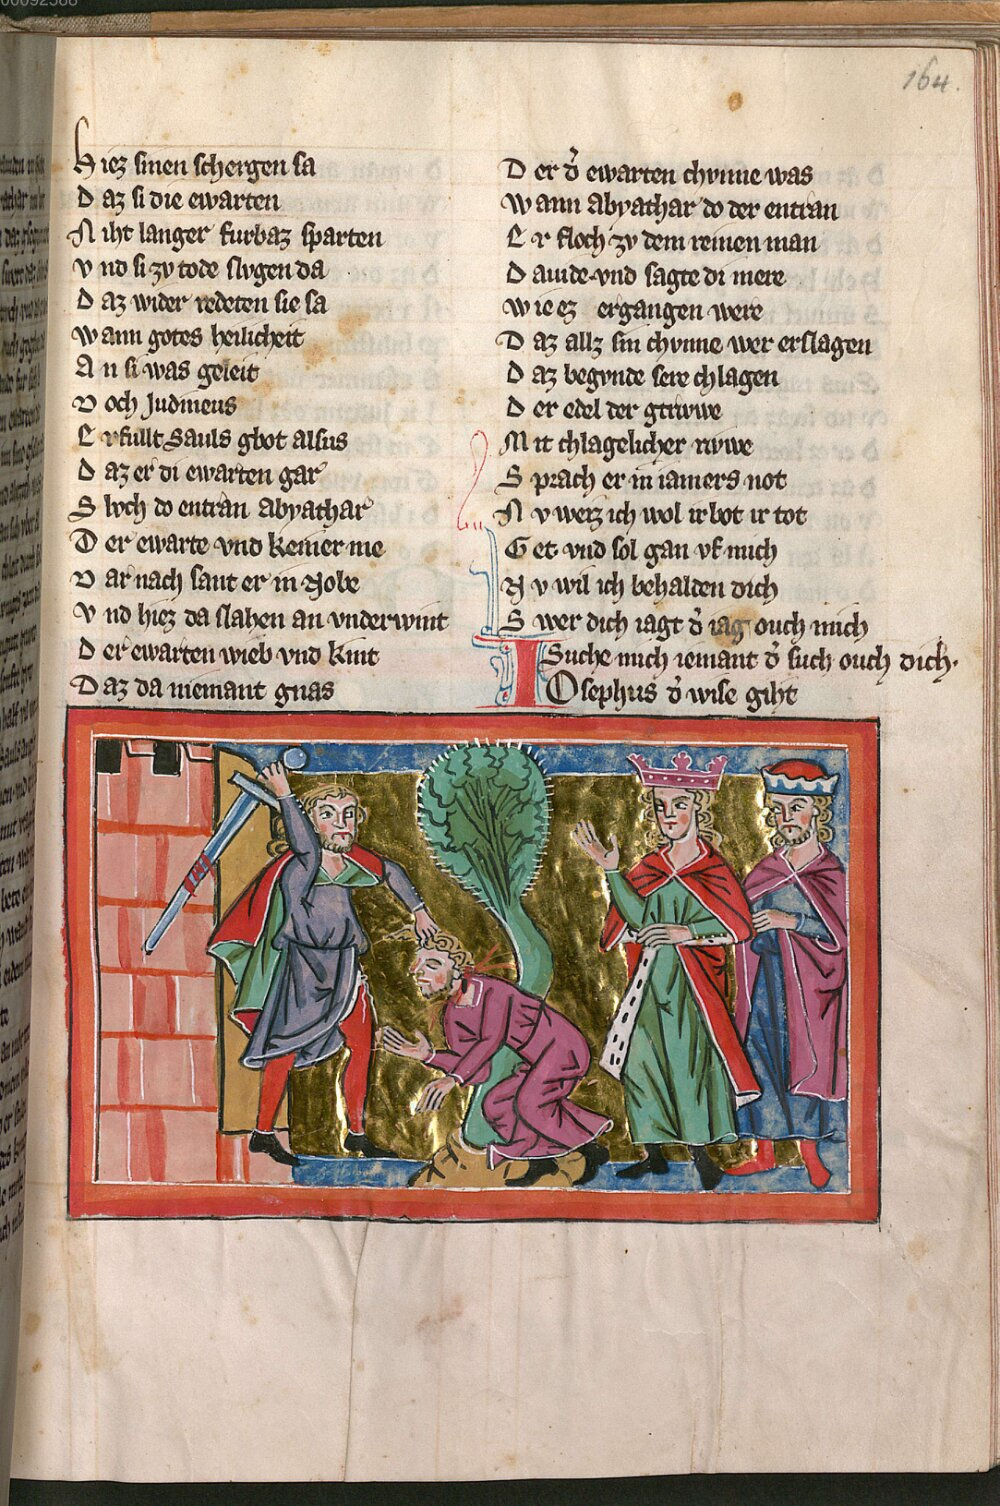 00092588
164.
Hiez sinen schergen sa
Daz si die ewarten
Niht langer furbaz sparten
Vnd si zv tode slvgen da
Daz wider redeten sie sa
Wann gotes heilicheit
An si was geleit
Doch Judmeus
Erfullt Sauls gbot alsus
Daz er di ewarten gar
Slvch do entran Abyathar
Der ewarte vnd keiner me
Dar nach sant er in Nobe
Vnd hiez da slahen an vnderwint
Der ewarten wieb vnd kint
Daz da niemant gnas
Der d̾ ewarten chvnne was
Wann Abyathar do der entran
Er floch zv dem reinen man
Dauide vnd sagte di mere
Wie ez ergangen were
Daz allz sin chvnne wer erslagen
Daz begvnde sere chlagen
Der edel der gtruwe
Mit chlagelicher ruwe
Sprach er in iamers not
Nv weiz ich wol ir bot ir tot
Get vnd sol gan vf mich
Nv wil ich behalden dich
Swer dich iagt d̾ iag ouch mich
Suche mich iemant d̾ such ouch dich.
IOsephus d̾ wise giht